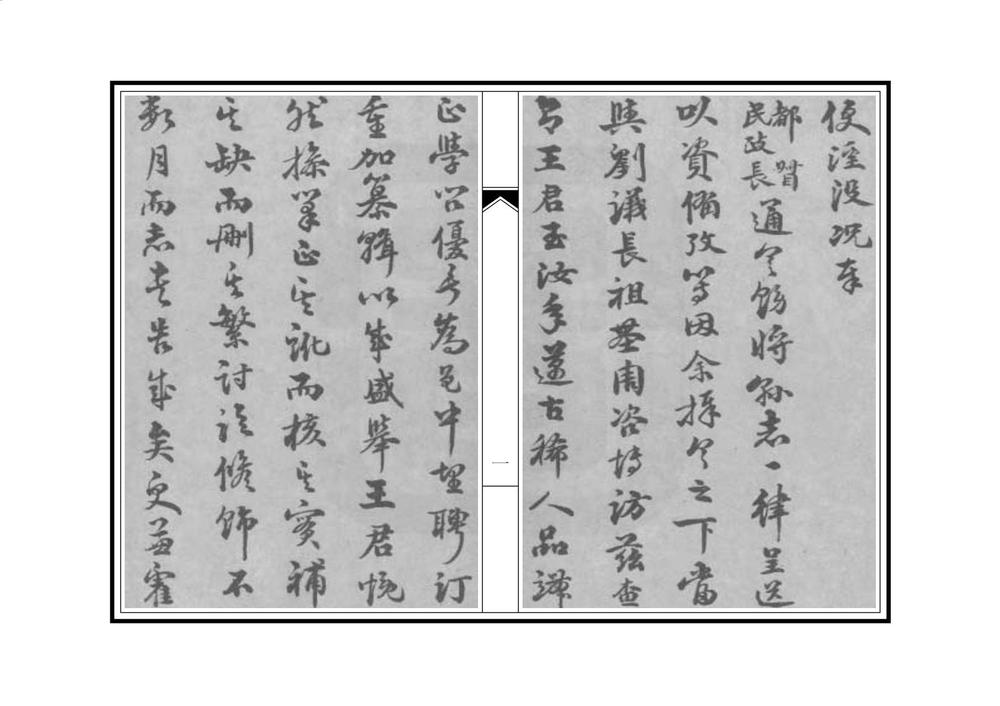 便湮没况奉
都督民政長通令飭將縣志一律呈送
以資備考等因余捧令之下當
與劉議長祖基周咨博訪茲查
有王君玉汝年邁古稀人品端
一
正學問優長為邑中聘訂
重加纂輯以成盛舉王君慨
然操筆正其訛而核其實補
其缺而刪其繁討論修飾不
數月而志書告成矣更兼霍